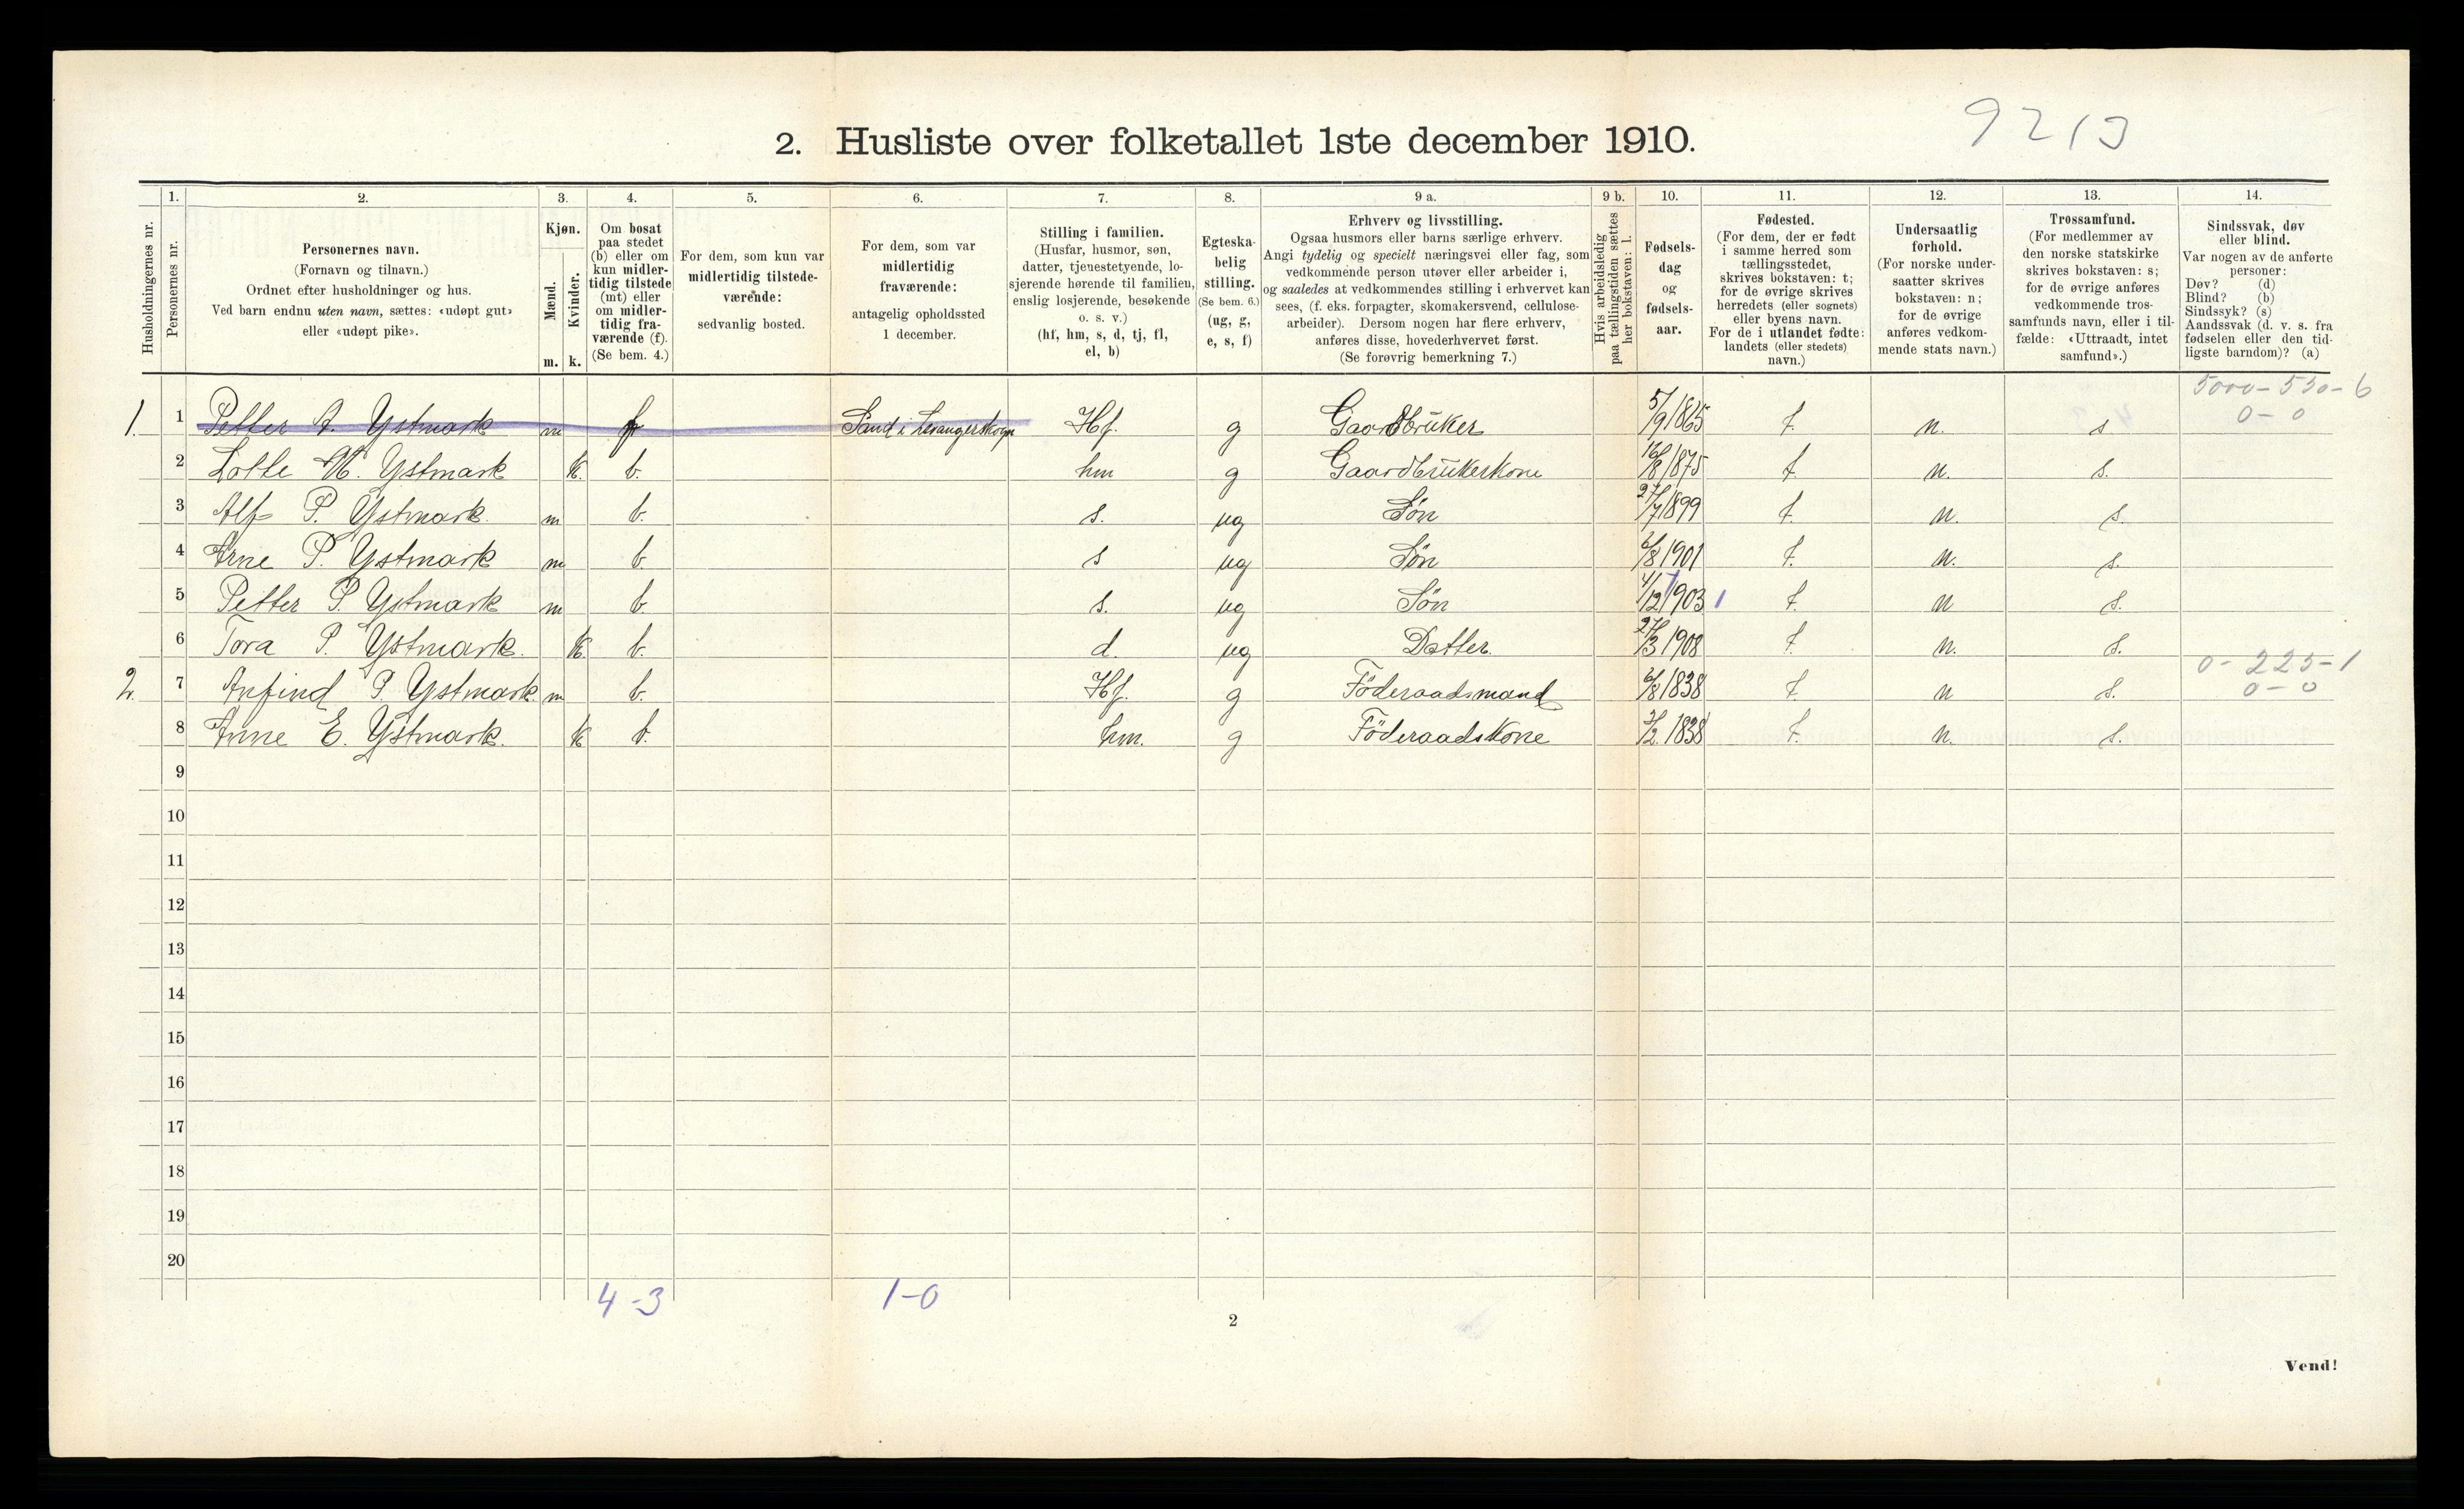 9213
2. Husliste over folketallet 1ste december 1910.
Husholdningernes nr.
1.
Personernes nr.
2.
Personernes navn.
(Fornavn og tilnavn.)
Ordnet efter husholdninger og hus.
Ved barn endnu uten navn, sættes: «udøpt gut»
eller «udøpt pike».
3.
Kjøn.
Mænd.
m.
Kvinder.
k.
4.
Om bosat
paa stedet
(b) eller om
kun midler-
tidig tilstede
(mt) eller
om midler-
tidig fra-
værende (f).
(Se bem. 4.)
5.
For dem, som kun var
midlertidig tilstede-
værende:
sedvanlig bosted.
6.
For dem, som var
midlertidig
fraværende:
antagelig opholdssted
1 december.
7.
Stilling i familien.
(Husfar, husmor, søn,
datter, tjenestetyende, lo-
sjerende hørende til familien,
enslig losjerende, besøkende
o. s. v.)
(hf, hm, s, d, tj, fl,
el, b)
8.
Egteska-
belig
stilling.
(Se bem. 6.)
(ug, g,
e, s, f)
9 a.
Erhverv og livsstilling.
Ogsaa husmors eller barns særlige erhverv.
Angi tydelig og specielt næringsvei eller fag, som
vedkommende person utøver eller arbeider i,
og saaledes at vedkommendes stilling i erhvervet kan
sees, (f. eks. forpagter, skomakersvend, cellulose-
arbeider). Dersom nogen har flere erhverv,
anføres disse, hovederhvervet først.
(Se forøvrig bemerkning 7.)
9 b.
Hvis arbeidsledig
paa tællingstiden sættes
her bokstaven: l.
10.
Fødsels-
dag
og
fødsels-
aar.
11.
Fødested.
(For dem, der er født
i samme herred som
tællingsstedet,
skrives bokstaven: t;
for de øvrige skrives
herredets (eller sognets)
eller byens navn.
For de i utlandet fødte:
landets (eller stedets)
navn.)
12.
Undersaatlig
forhold.
(For norske under-
saatter skrives
bokstaven: n;
for de øvrige
anføres vedkom-
mende stats navn.)
13.
Trossamfund.
(For medlemmer av
den norske statskirke
skrives bokstaven: s;
for de øvrige anføres
vedkommende tros-
samfunds navn, eller i til-
fælde: «Uttraadt, intet
samfund».)
14.
Sindssvak, døv
eller blind.
Var nogen av de anførte
personer:
Døv? (d)
Blind? (b)
Sindssyk? (s)
Aandssvak (d. v. s. fra
fødselen eller den tid-
ligste barndom)? (a)
5000-550-6
0-0
1. 1 Petter A. Ystmark m f Sand i Levangerskogn Hf. g Gaardbruker 5/9 1865 t. n. s
2 Lotte M. Ystmark k. b. hm g Gaardbrukerkone 16/8 1875 t. n. s.
3 Alf P. Ystmark. m b. s. ug Søn 27/7 1899 t. n. s.
4 Arne P. Ystmark m b. s ug Søn 6/8 1901 t. n. s.
5 Petter P. Ystmark m b. s. ug Søn 4/12 1903 1 t. n s.
6 Tora P. Ystmark. k b. d. ug Datter. 27/3 1908 t. n. s.
0-225-1
0-0
2. 7 Anfind P Ystmark. m b. Hf. g Föderaadsmand 6/8 1838 t. n s.
8 Anne E. Ystmark. k b. hm. g Föderaadskone 2/2 1838 t. n. s.
9
10
11
12
13
14
15
16
17
18
19
20
4-3 1-0
2
Vend!